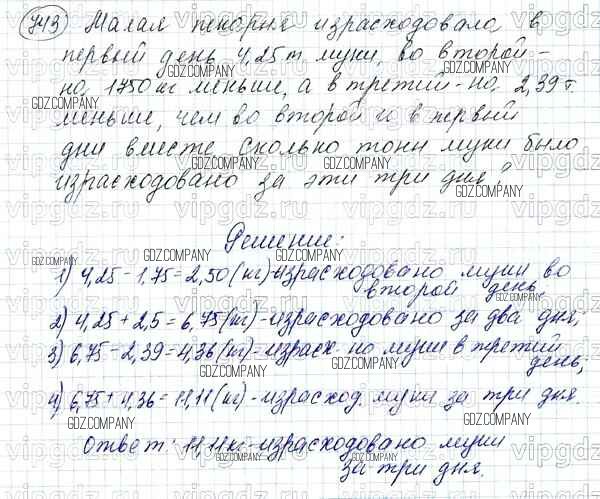 743 Малая пекарня израсходовала в
первый день 4,25 т муки, во второй -
на 1750 кг меньше, а в третий - на 2,39 т.
меньше, чем во второй и в первый
дни вместе. Сколько тонн муки было
израсходовано за эти три дня?
Решение:
1) 4,25 - 1,75 = 2,50 (кг) - израсходовано муки во
второй день
2) 4,25 + 2,5 = 6,75 (кг) - израсходовано за два дня;
3) 6,75 - 2,39 = 4,36 (кг) - израсх-но муки в третий
день;
4) 6,75 + 4,36 = 11,11 (кг) - израсход. муки за три дня.
Ответ: 11,11 кг - израсходовано муки
за три дня.
GDZ.COMPANY
vipgdz.ru